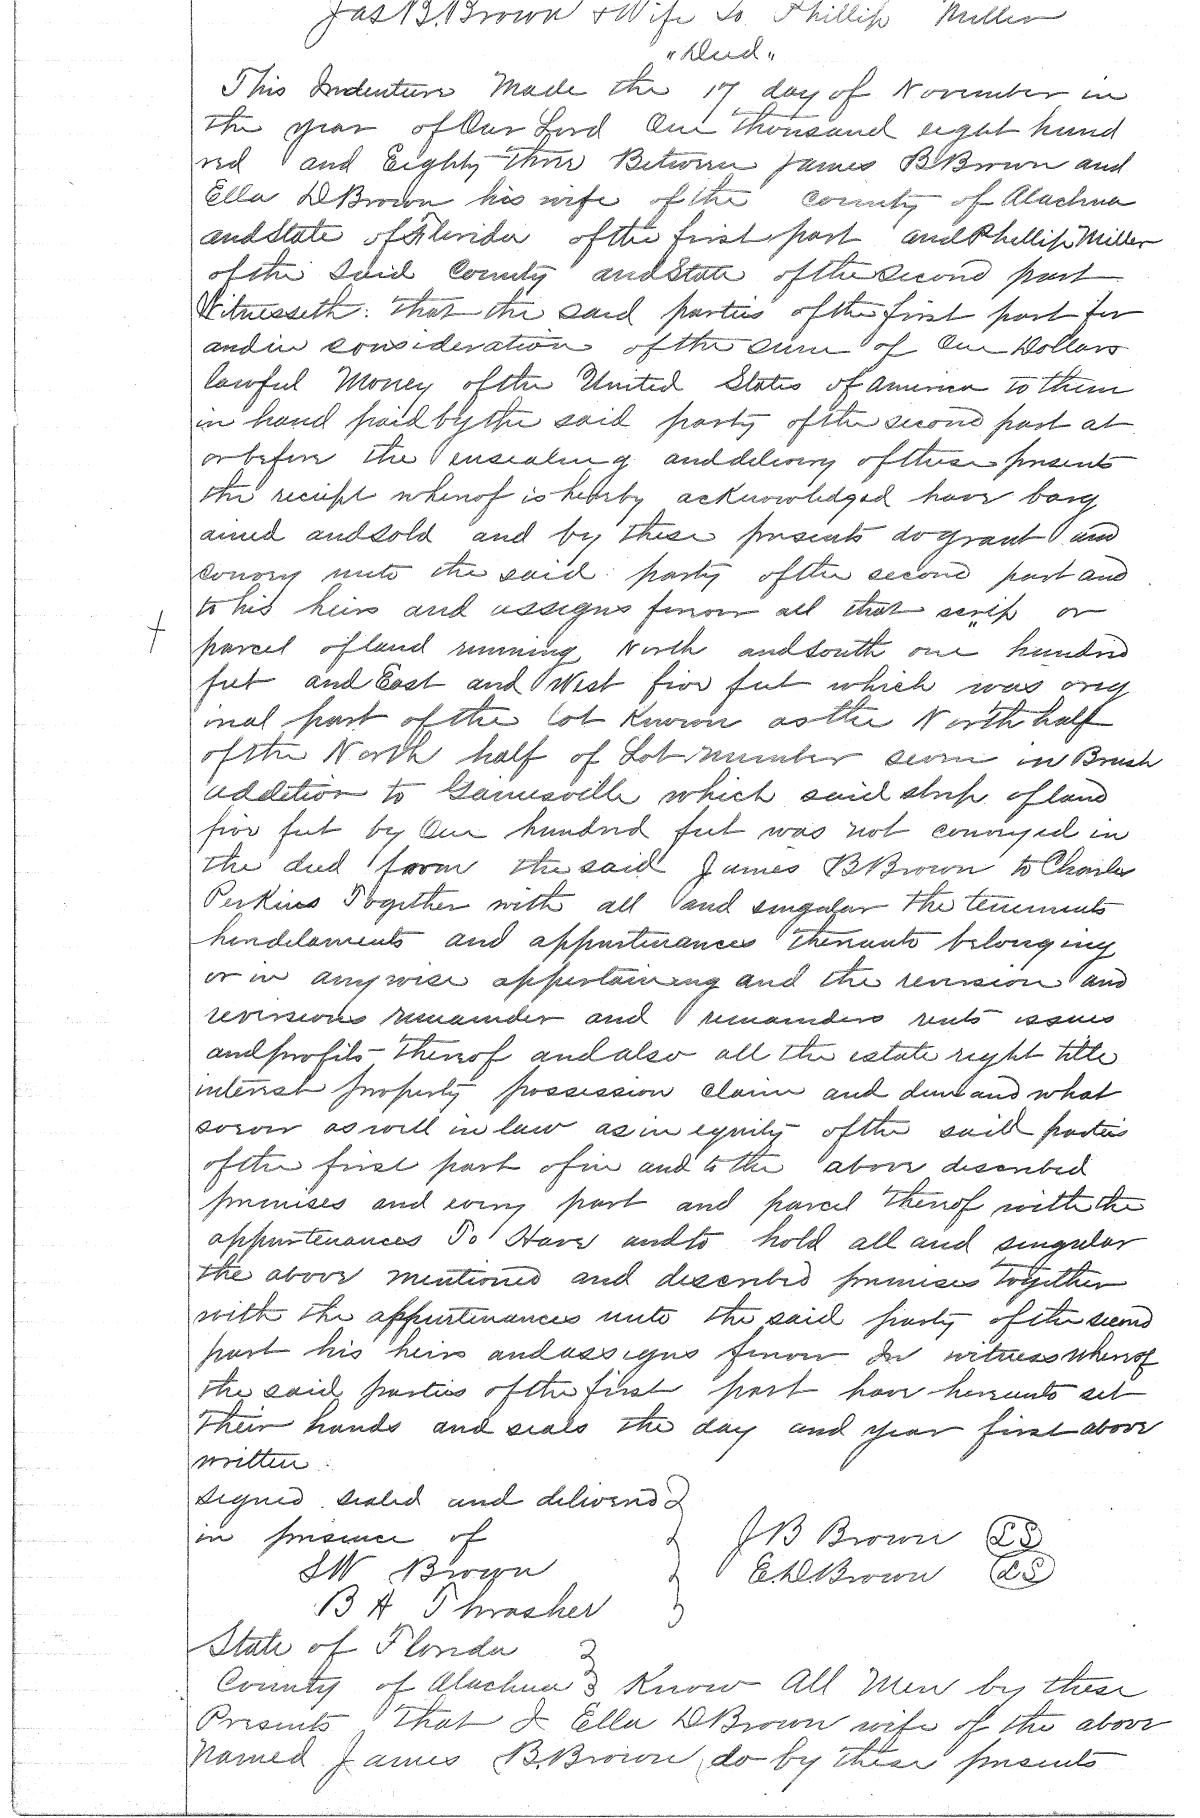 Jas B. Brown & Wife To Phillip Miller
"Deed"
This Indenture Made the 17 day of November in
the year of Our Lord One thousand eight hund
red and Eighty three Between James B Brown and
Ella D Brown his wife of the county of Alachua
and State of Florida of the first part and Phillip Miller
of the said County and State of the second part
Witnesseth: that the said parties of the first part for
and in consideration of the sum of One Dollars
lawful Money of the United States of America to them
in hand paid by the said party of the second part at
or before the ensealing and delivery of these presents
the reciept whereof is hereby acknowledged have barg
ained and sold and by these presents do grant and
convey unto the said party of the second part and
to his heirs and assigns forever all that strip or
parcel of land running North and South one hundred
feet and East and West five feet which was orig
inal part of the lot Known as the North half
of the North half of Lot number seven in Brush
addition to Gainesville which said strip of land
five feet by One hundred feet was not conveyed in
the deed from the said James B Brown to Charles
Perkins Together with all and singular the tenements
hereditaments and appurtenances thereunto belonging
or in anywise appertaining and the reversion and
reversions remainder and remainders rents issues
and profits thereof and also all the estate right title
interest property possession claim and demand what
soever as well in law as in equity of the said parties
of the first part of in and to the above described
premises and every part and parcel thereof with the
appurtenances To Have and to hold all and singular
the above mentioned and described premises together
with the appurtenances unto the said party of the second
part his heirs and assigns forever In witness whereof
the said parties of the first part have hereunto set
their hands and seals the day and year first above
written
signed sealed and delivered
in presence of
J B Brown LS
S W Brown
E. D. Brown LS
B A Thrasher
State of Florida
County of Alachua Know All Men by these
Presents That I Ella D Brown wife of the above
Named James B. Brown do by these presents